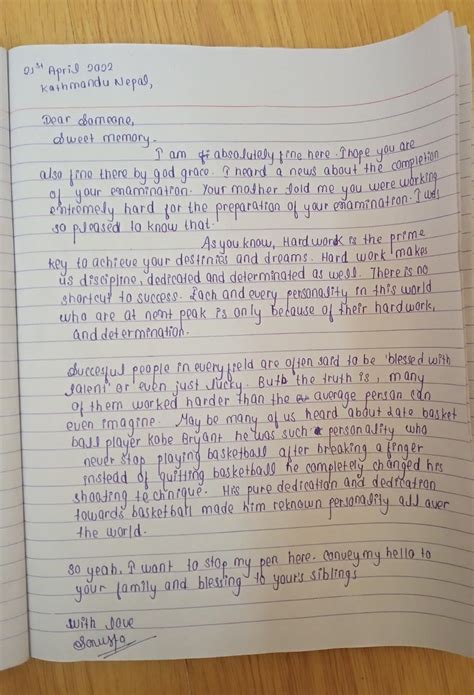 01st April 2022
Kathmandu Nepal,
Dear Someone,
Sweet memory.
I am absolutely fine here. I hope you are
also fine there by god grace. I heard a news about the completion
of your enamination. Your mother told me you were working
entremely hard for the preparation of your enamination. I was
so pleased to know that.
As you know, Hard work is the prime
key to achieve your destinies and dreams. Hard work makes
us discipline, dedicated and determinated as well. There is no
shortcut to success. Each and every personality in this world
who are at nent peak is only because of their hardwork,
and determination.
Succesful people in every field are often said to be 'blessed with
talent' or even just lucky. But the truth is, many
of them worked harder than the average person can
even imagine. May be many of us heard about late basket
ball player Kobe Bryant he was such personality who
never stop playing basketball after breaking a finger
instead of quitting basketball he completely changed his
shooting technique. His pure dedication and dedication
towards basketball made him reknown personality all over
the world.
So yeah, I want to stop my pen here. convey my hello to
your family and blessing to your's siblings
with love